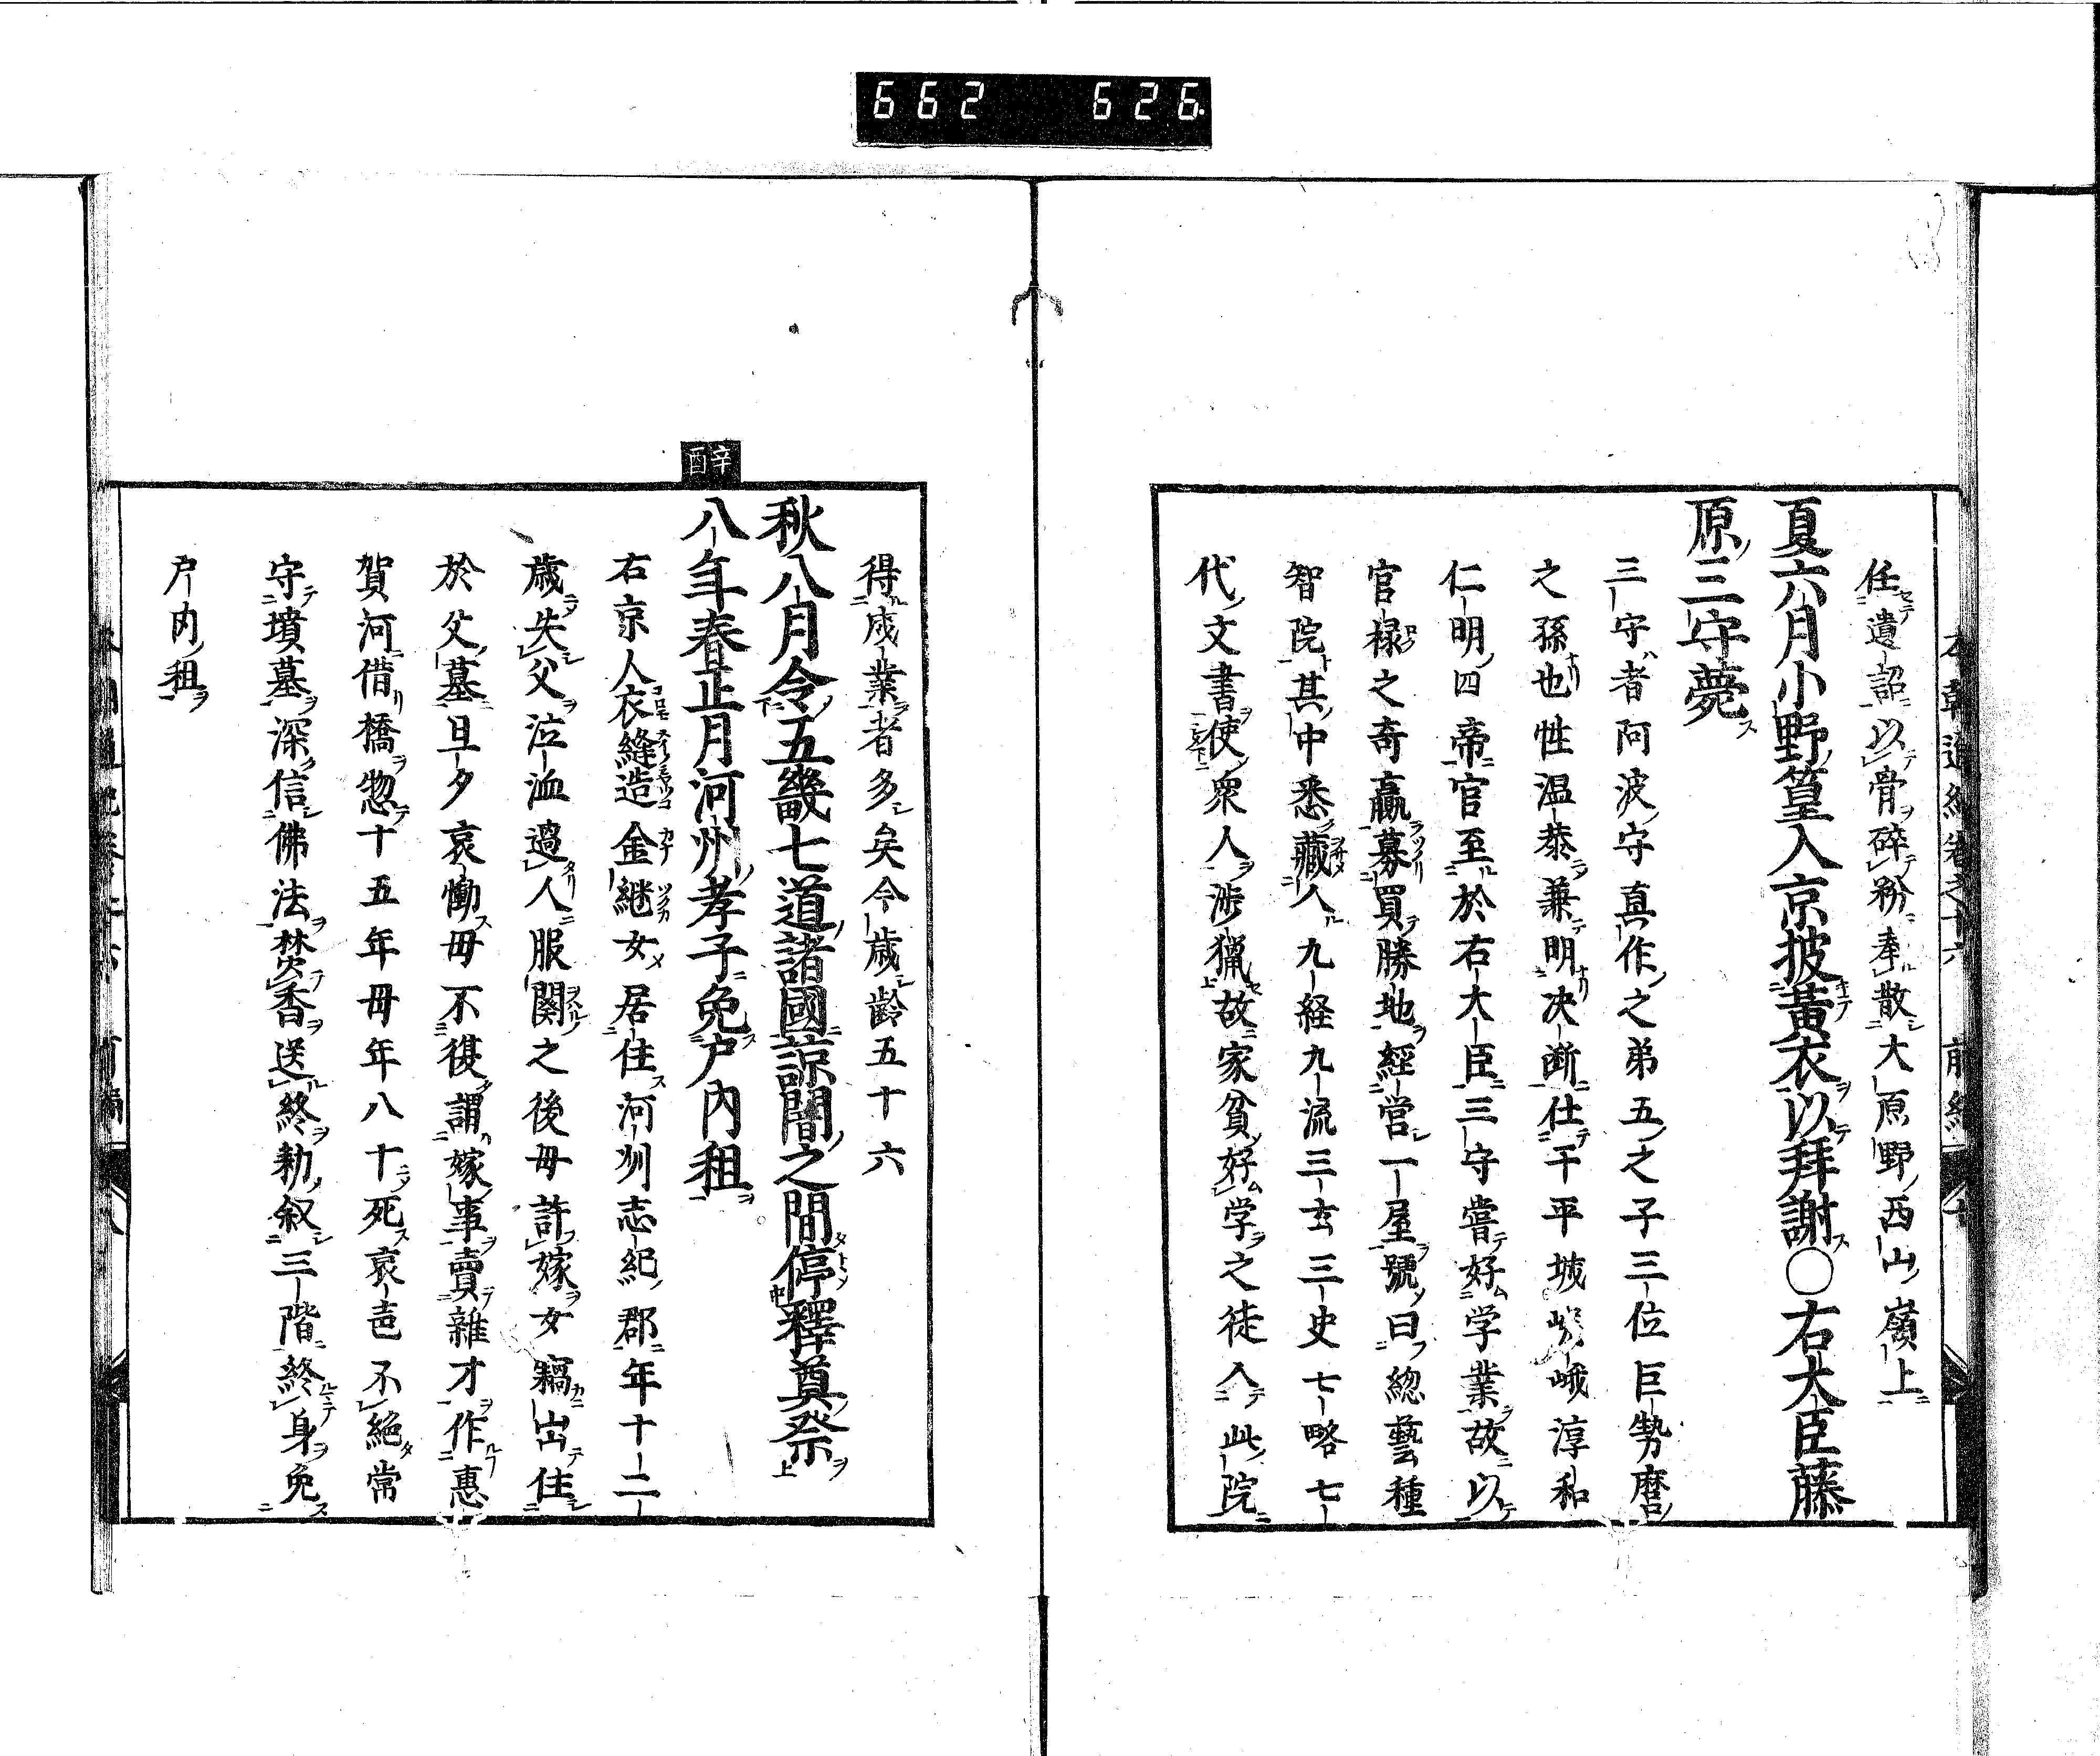 662 626
任遺詔以骨碎粉奉散大原野西山嶺上
夏六月小野篁入京披黃衣以拜謝〇右大臣藤
原三守薨
三守者阿波守真作之弟五之子三位巨勢麿
之孫也性温恭兼明决断仕于平城嵯峨淳和
仁明四帝官至於右大臣三守嘗好学業故以
官禄之奇羸募買勝地經営一屋號曰緫藝種
智院其中悉藏入九経九流三玄三史七略七
代文書使衆人渉猟故家貧好学之徒入此院
得成業者多矣今歳齢五十六
秋八月令五畿七道諸國諒闇之間停釋奠祭
辛酉
八年春正月河州孝子免戸内租
右京人衣縫造金継女居住河州志紀郡年十二
歳失父泣血過人服闋之後毋許嫁女竊出住
於父墓旦夕哀慟毋不復謂嫁事賣雜才作惠
賀河借橋惣十五年毋年八十死哀音不絶常
守墳墓深信佛法焚香送終勅叙三階終身免
戸内租